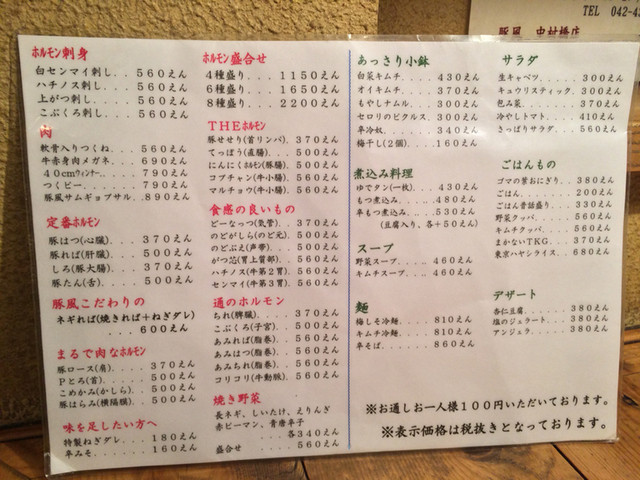 TEL 042-4
豚風 中村橋店
ホルモン刺身
白センマイ刺し...560えん
ハチノス刺し...560えん
上がつ刺し...560えん
こぶくろ刺し...560えん
肉
軟骨入りつくね...560えん
牛赤身肉メガネ...690えん
40cmウィンナー...790えん
つくピー...790えん
豚風サムギョプサル.890えん
定番ホルモン
豚はつ(心臓)...370えん
豚れば(肝臓)...500えん
しろ(豚大腸)...370えん
豚たん(舌)...500えん
豚風こだわりの
ネギれば(焼きれば+ねぎダレ)
...600えん
まるで肉なホルモン
豚ロース(肩)...370えん
Pとろ(首)...500えん
こめかみ(かしら).500えん
豚はらみ(横隔膜).500えん
味を足したい方へ
特製ねぎダレ...180えん
辛みそ...160えん
ホルモン盛合せ
4種盛り...1150えん
6種盛り...1650えん
8種盛り...2200えん
THEホルモン
豚せせり(首リンパ).370えん
てっぽう(直腸)..500えん
にんにくホルモン(豚腸).500えん
コブチャン(牛小腸).560えん
マルチョウ(牛小腸).560えん
食感の良いもの
どーなっつ(気管).370えん
のどがしら(のど元).500えん
のどぶえ(声帯)..500えん
がつ芯(胃上質部).560えん
ハチノス(牛第2胃).560えん
センマイ(牛第3胃).560えん
通のホルモン
ちれ(脾臓)...370えん
こぶくろ(子宮)..500えん
あみれば(脂巻)..500えん
あみはつ(脂巻)..560えん
あみちれ(脂巻)..560えん
コリコリ(牛動脈).560えん
焼き野菜
長ネギ、しいたけ、えりんぎ
赤ピーマン、青唐辛子
...各340えん
盛合せ...560えん
あっさり小鉢
白菜キムチ...430えん
オイキムチ...370えん
もやしナムル..300えん
セロリのピクルス.300えん
辛冷奴...340えん
梅干し(2個)..160えん
煮込み料理
ゆでタン(一枚).430えん
もつ煮込み...480えん
辛もつ煮込み..530えん
(豆腐入り、各+50えん)
スープ
野菜スープ...460えん
キムチスープ...460えん
麺
梅しそ冷麺..810えん
キムチ冷麺..810えん
辛そば...860えん
サラダ
生キャベツ...300えん
キュウリスティック.300えん
包み菜...370えん
冷やしトマト..410えん
さっぱりサラダ..560えん
ごはんもの
ゴマの葉おにぎり.380えん
ごはん...200えん
ごはん昔話盛り..330えん
野菜クッパ...560えん
キムチクッパ..560えん
まかないTKG.370えん
東京ハヤシライス.680えん
デザート
杏仁豆腐...380えん
塩のジェラート..380えん
アンジェラ...380えん
※お通しお一人様100円いただいております。
※表示価格は税抜きとなっております。